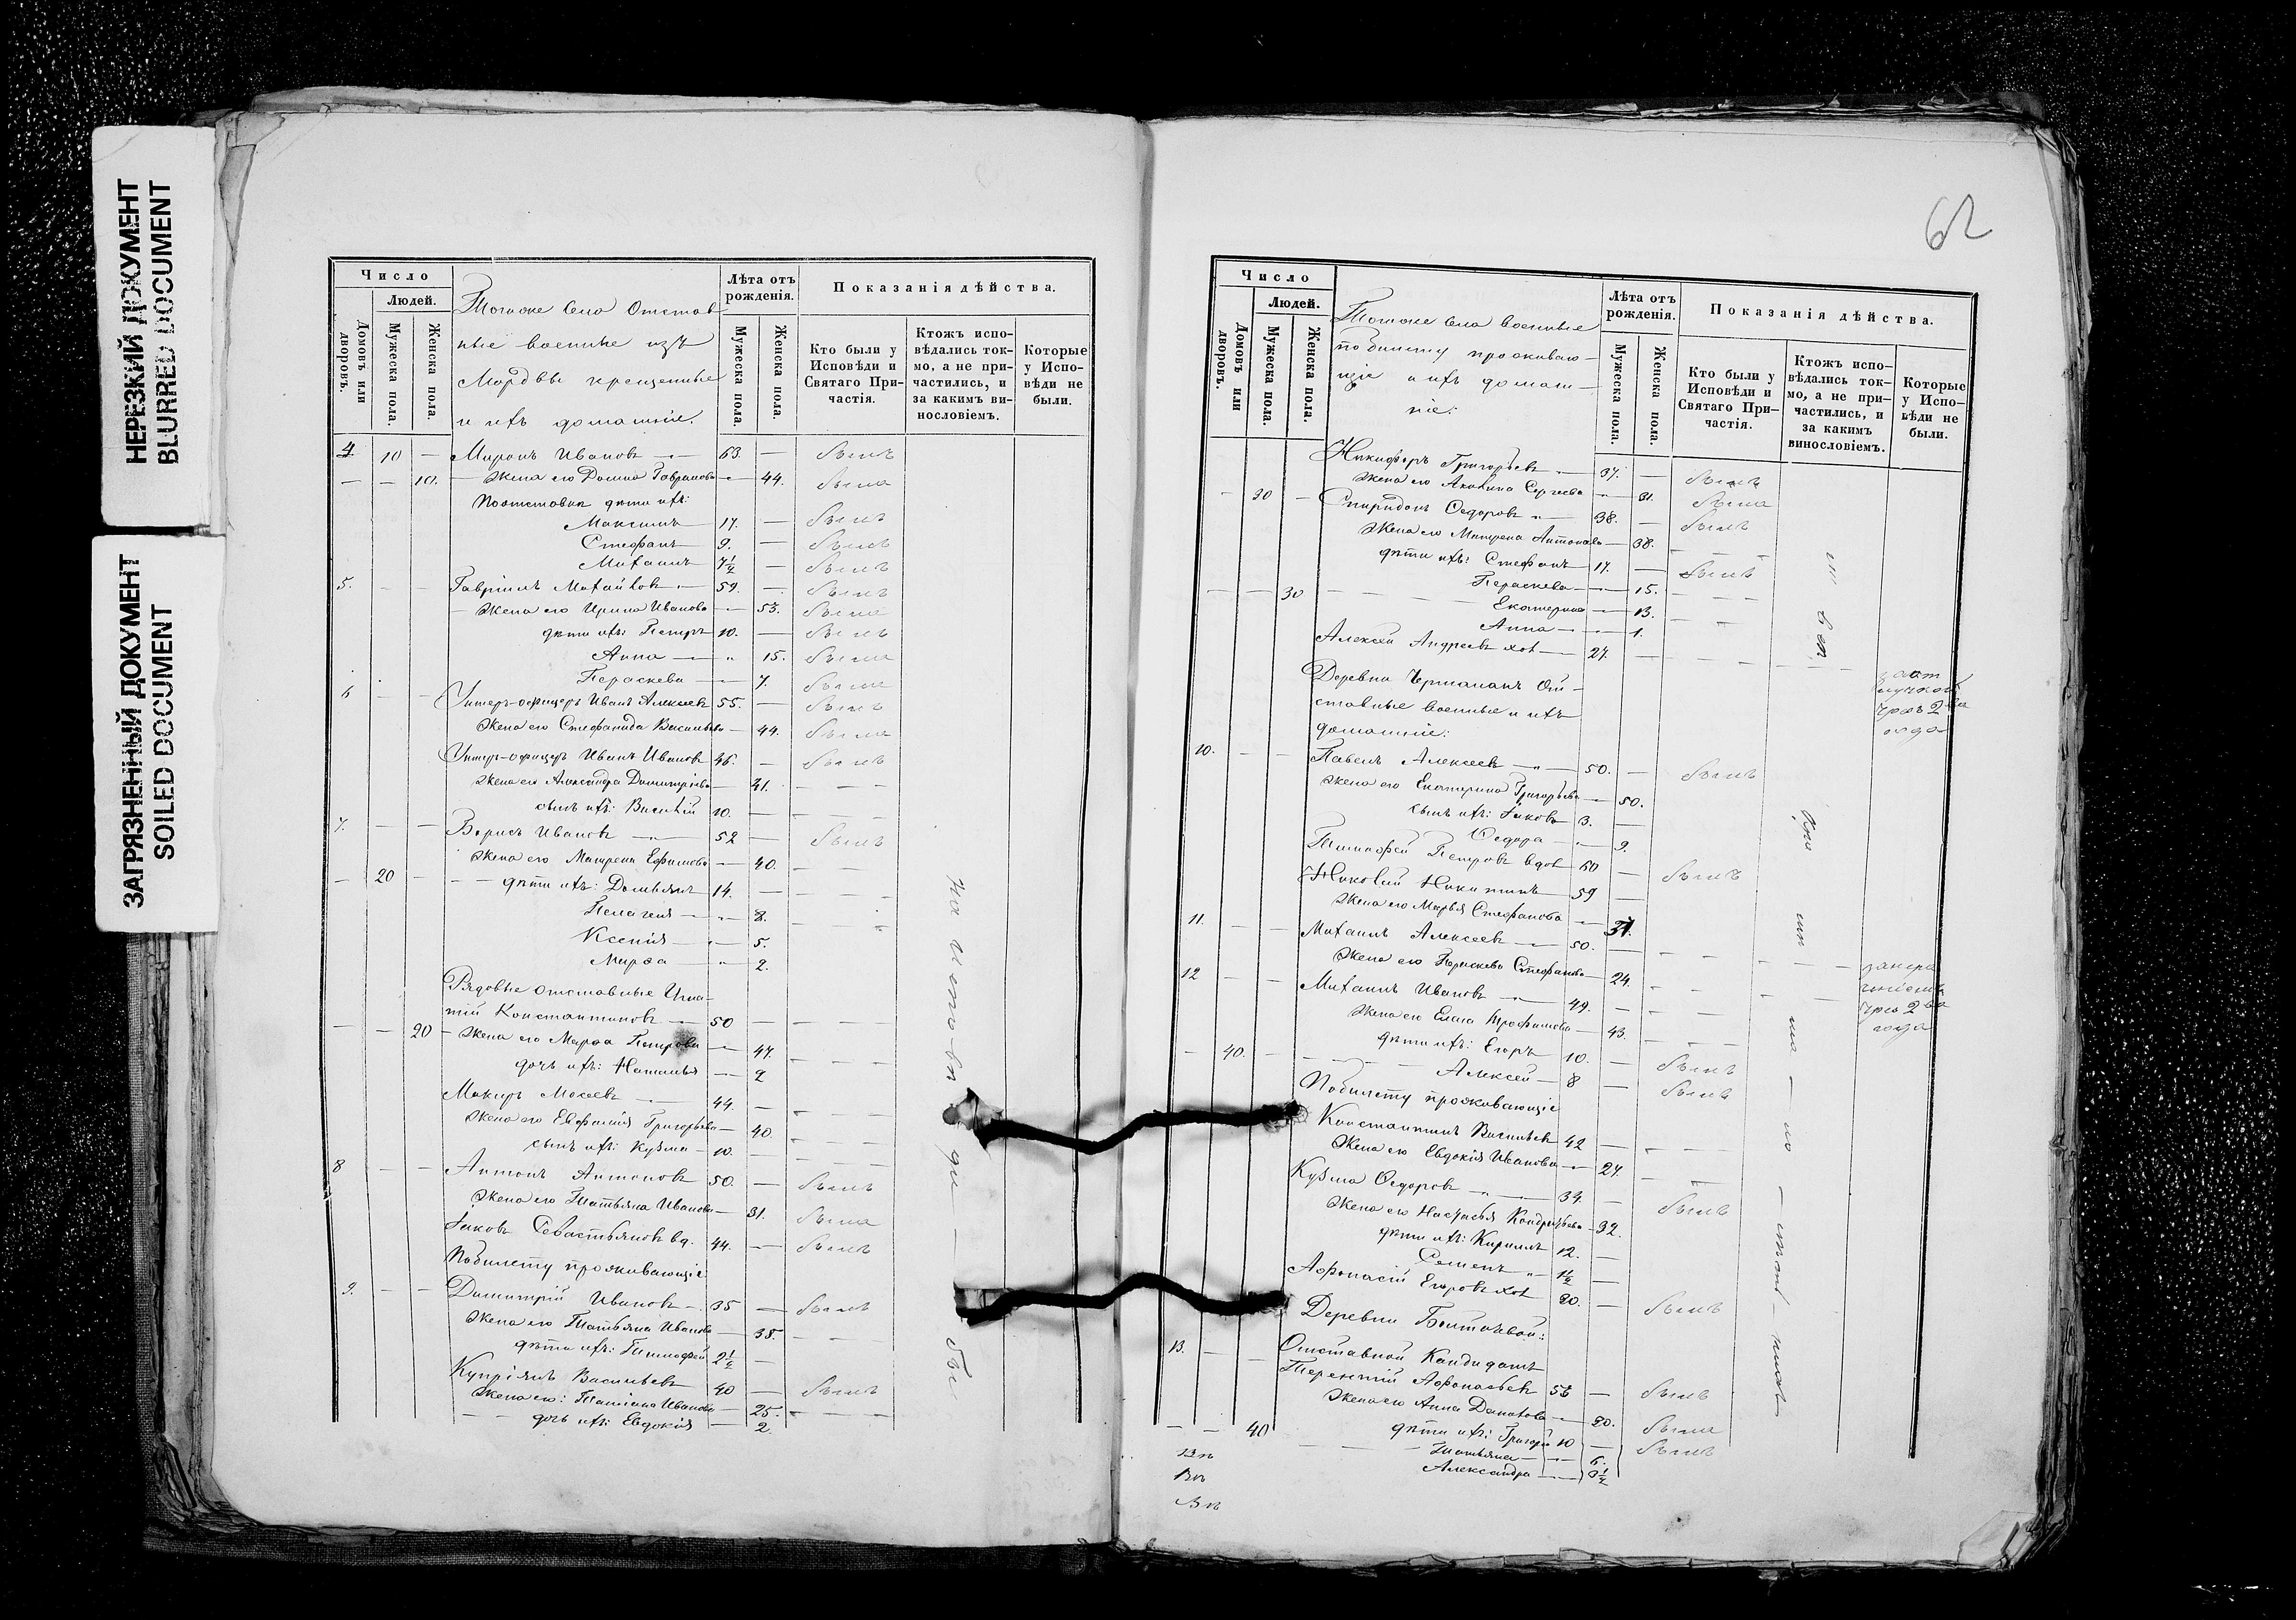 НЕРЕЗКИЙ ДОКУМЕНТ
BLURRED DOCUMENT
ЗАГРЯЗНЕННЫЙ ДОКУМЕНТ
SOILED DOCUMENT
Число
Людей.
Домовъ или дворовъ.
Мужеска пола.
Женска пола.
Тогоже села Отстав
ные военные изъ
Мордвы крещенные
и ихъ домашніе.
Лѣта отъ рожденія.
Мужеска пола.
Женска пола.
Показанія дѣйства.
Кто были у Исповѣди и Святаго При-частія.
Ктожъ испо-вѣдались ток-мо, а не при-частились, и за какимъ ви-нословіемъ.
Которые у Испо-вѣди не были.
4 10 — Миронъ Ивановъ — 63. — былъ
— — 10. — Жена его Домна Гаврилова — 44. была
дѣти ихъ:
Максимъ 17. — былъ
Стефанъ 9. — былъ
Михаилъ 7½ — былъ
5. — — Гавріилъ Михайловъ — 59. — былъ
— Жена его Ирина Иванова — 53. была
дѣти ихъ: Петръ 10. — былъ
Анна — " 15. была
Параскева — 7. была
6 — — Унтеръ-офицеръ Иванъ Алексеевъ 55. — былъ
Жена его Стефанида Васильева — 44. была
Унтеръ-офицеръ Иванъ Ивановъ 46. — былъ
Жена его Александра Димитріева — 41. — — —
сынъ ихъ: Василій 10. — — — —
7. — — Борисъ Ивановъ — 52 — былъ
Жена его Матрена Ефимова — 40. — — —
— 20 — — — дѣти ихъ: Домьянъ 14. — — —
Пелагея — " 8. — —
Ксенія — 5.
Марѳа — " 2.
Рядовые отставные Игна-
тій Константиновъ — 50 — — —
— — 20 — Жена его Марѳа Петрова — 47. — — —
дочь ихъ: Наталья — 2
Макаръ Мокеевъ — 44. — — — —
Жена его Евфимія Григорьева — 40. — — —
сынъ ихъ: Кузма — 10. — — — —
8 — — Антонъ Антоновъ 50. — былъ
Жена его Татьяна Иванова — 31. была
Іаковъ Севастьяновъ вд. 44. — былъ
По билету проживающіе
9. — — Димитрій Ивановъ — 35 — былъ
Жена его Татьяна Иванова — 38. — — —
дѣти ихъ: Тимофей 2½ —
Купріянъ Васильевъ 40 — былъ
Жена его: Татіана Иванова — 25. — — —
— — дочь ихъ: Евдокія — 2.
на исповѣди —
62
Число
Людей.
Домовъ или дворовъ.
Мужеска пола.
Женска пола.
Тогоже села военные
по билету проживаю-
щіе и ихъ домаш-
ніе:
Лѣта отъ рожденія.
Мужеска пола.
Женска пола.
Показанія дѣйства.
Кто были у Исповѣди и Святаго При-частія.
Ктожъ испо-вѣдались ток-мо, а не при-частились, и за какимъ винословіемъ.
Которые у Испо-вѣди не были.
Никифоръ Григорьевъ — 37. — былъ
Жена его Акилина Сергеева " 31. была
— 30 — Спиридонъ Ѳедоровъ " 38. — былъ
Жена его Матрена Антонова — 38. — — —
дѣти ихъ: Стефанъ 17. — былъ
Параскева — 15. — — —
— — 30 — — — Екатерина — 13. — —
Анна — 1.
Алексѣй Андреевъ хол — 27. — — — — — —
за от
лучкой
чрез 2-ва
года
Деревни Чермалакъ От-
ставные военные и ихъ
домашніе:
10. — — Павелъ Алексеевъ — 50. — былъ
Жена его Екатерина Григорьева — 50.
сынъ ихъ: Іаковъ 3. —
Ѳедора — 9.
Тимофей Петровъ вдов 60 — былъ
Николай Никитинъ 59 —
Жена его Марья Стефанова — 31.
11. — — Михаилъ Алексеевъ — 50. — — — — —
Жена его Параскева Стефанова — 24. — — —
12 — — Михаилъ Ивановъ — 49. — — —
чрез 2-ва
года
Жена его Елена — 43. — — —
— 40. — — — — дѣти ихъ: Егоръ 10. — былъ
Алексей — 8 — былъ
По билету проживающіе
Константинъ Васильевъ 42 — — — —
Жена его Евдокія Иванова — 27. — —
Кузма Ѳедоровъ — " — 34. — былъ
Жена его Настасья Кондратьева — 32.
дѣти ихъ: Кириллъ 12. —
Семенъ " 1½ —
Афонасій Егоровъ хол 20. — былъ
Деревни
13. — — Отставной Кандидатъ
Терентій Афонасьевъ 56 — былъ
Жена его Анна — 20. была
— — 40 — — — дѣти ихъ: Григорій 10 — былъ
Татьяна — 6.
Александра — 3½